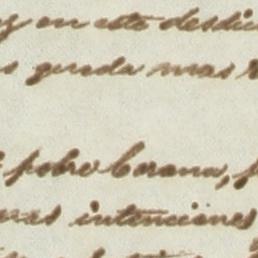 y en este desdic
s queda mas
pobre Corona, p
vas intenciones